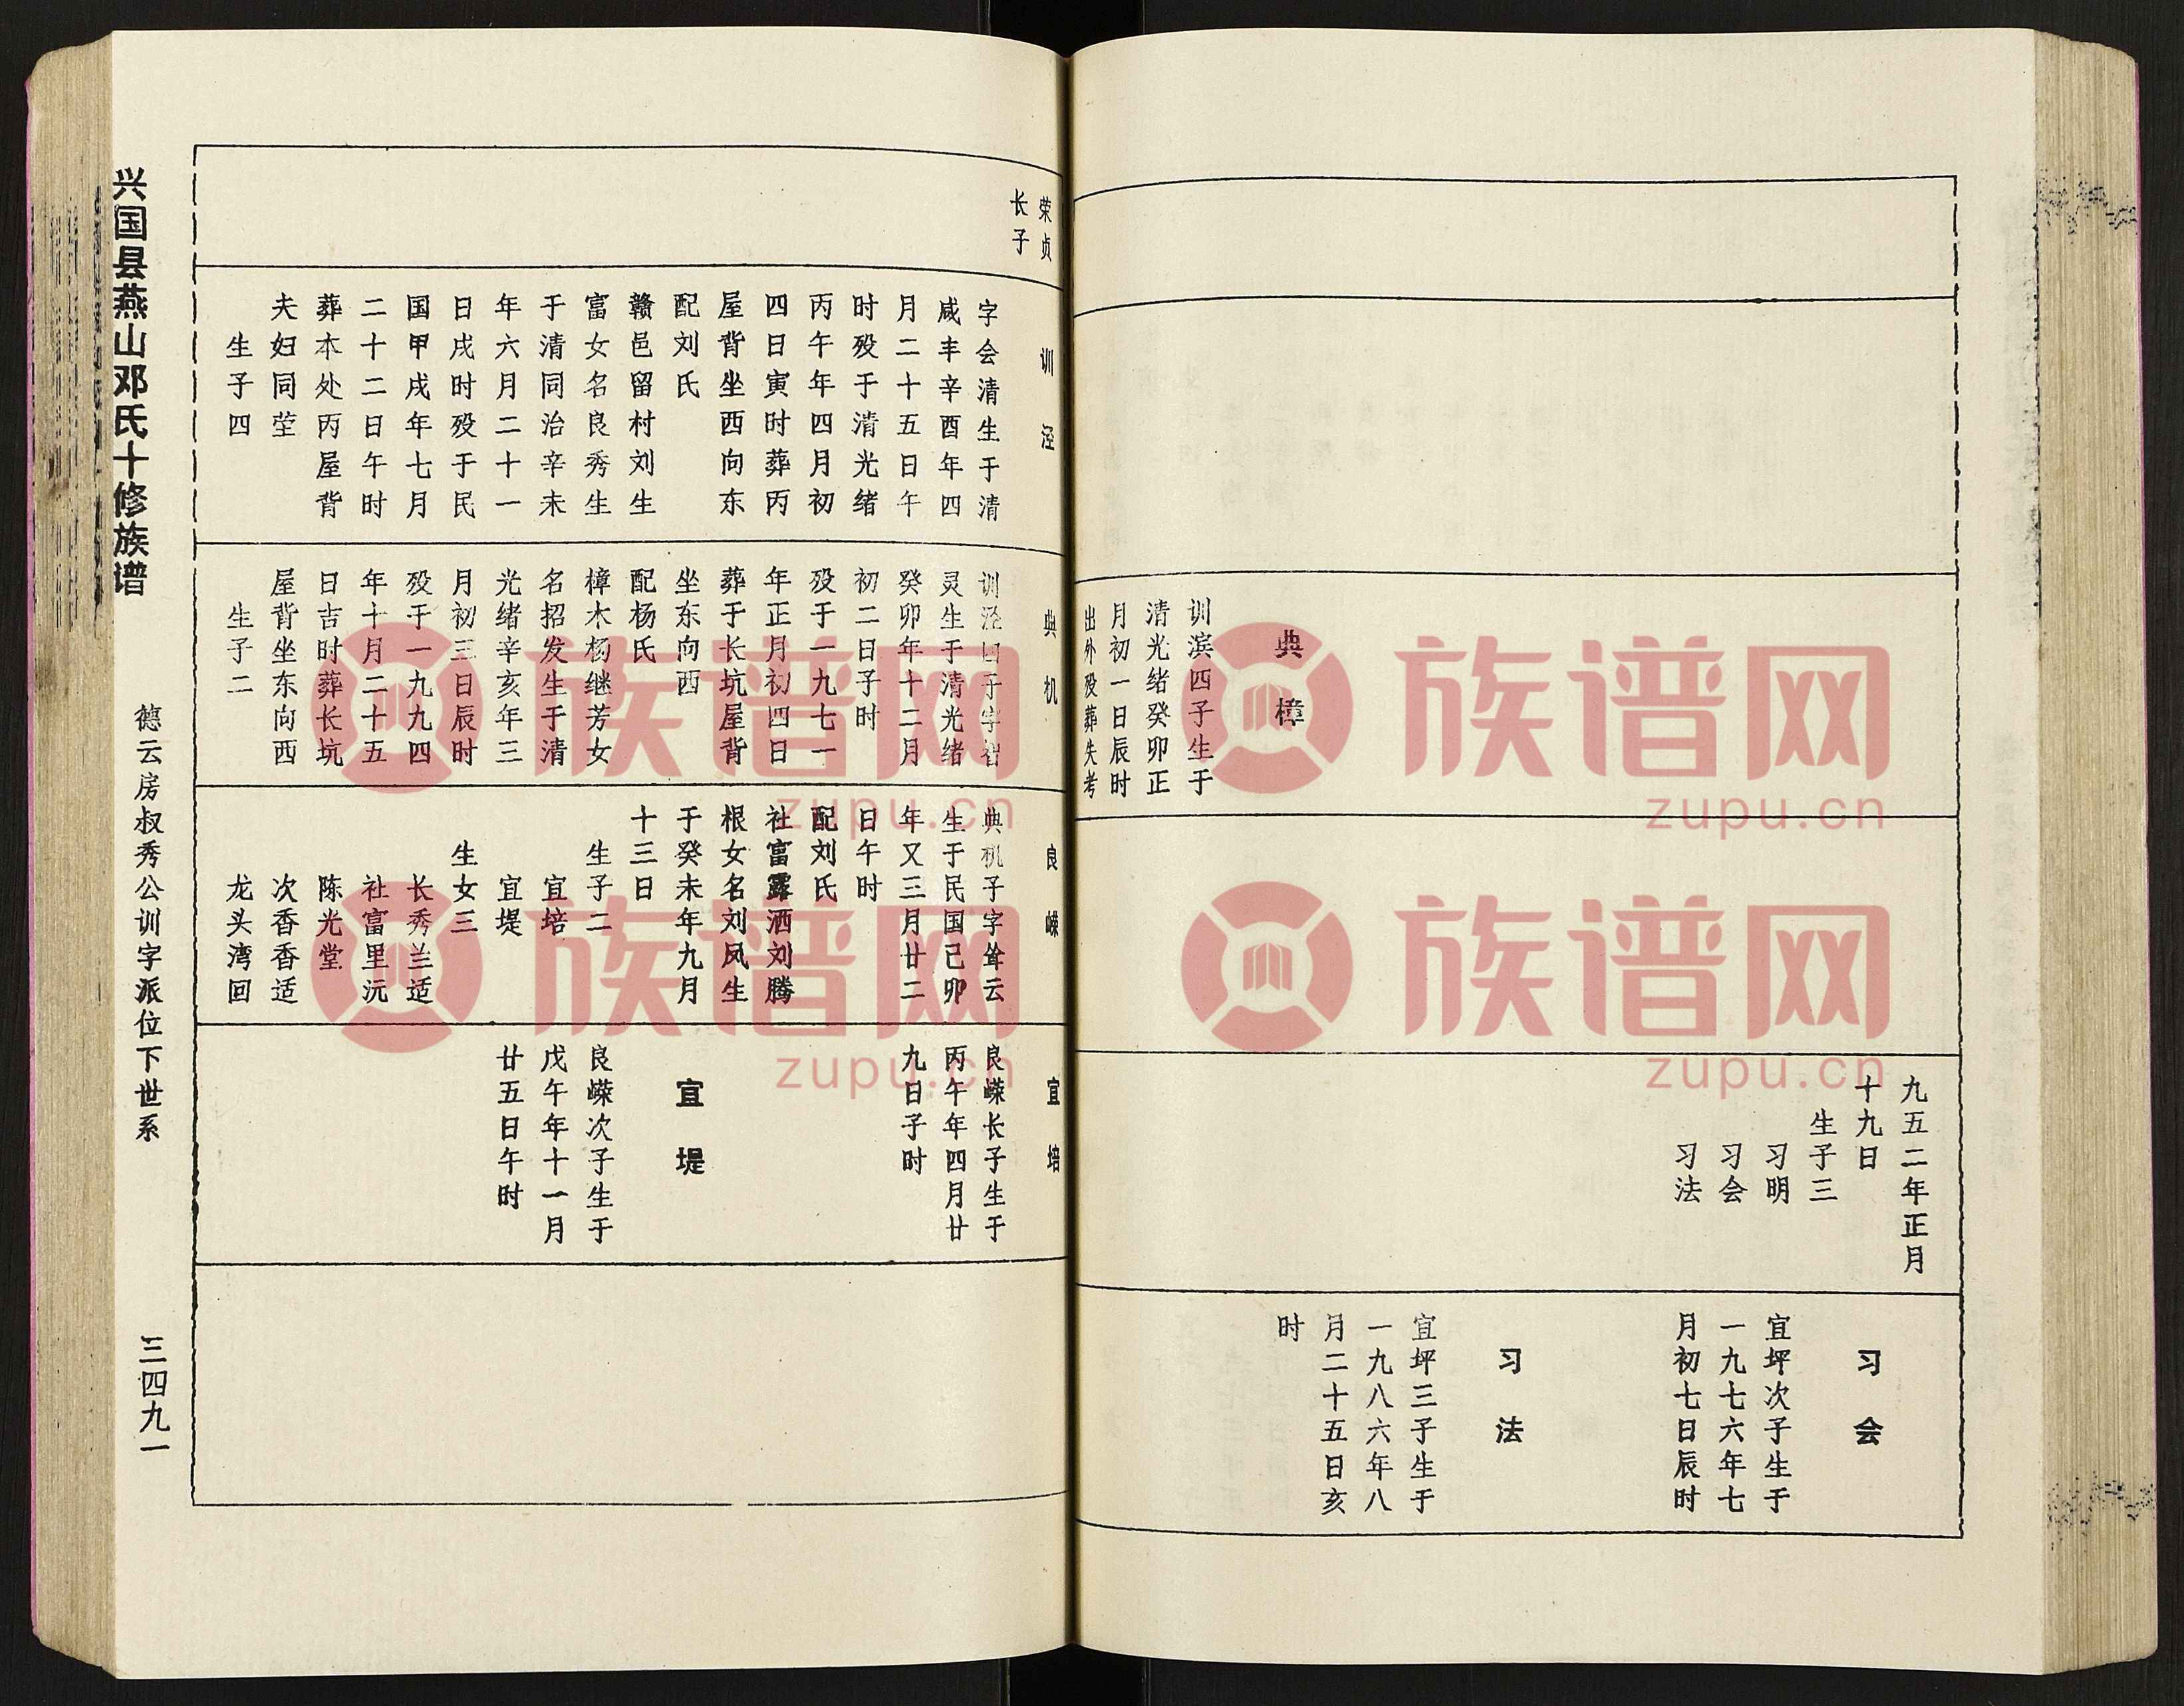 典樟
训滨四子生于
清光绪癸卯正
月初一日辰时
出外殁葬失考
九五二年正月
十九日
生子三
习明
习会
习法
习会
宜坪次子生于
一九七六年七
月初七日辰时
习法
宜坪三子生于
一九八六年八
月二十五日亥
时
荣贞
长子
训泾
字会清生于清
咸丰辛酉年四
月二十五日午
时殁于清光绪
丙午年四月初
四日寅时葬丙
屋背坐西向东
配刘氏
赣邑留村刘生
富女名良秀生
于清同治辛未
年六月二十一
日戌时殁于民
国甲戌年七月
二十二日午时
葬本处丙屋背
夫妇同茔
生子四
典机
训泾四子字智
灵生于清光绪
癸卯年十二月
初二日子时
殁于一九七一
年正月初四日
葬于长坑屋背
坐东向西
配杨氏
樟木杨继芳女
名招发生于清
光绪辛亥年三
月初三日辰时
殁于一九九四
年十月二十五
日吉时葬长坑
屋背坐东向西
生子二
良嵘
典机子字耸云
生于民国己卯
年又三月廿二
日午时
配刘氏
社富露洒刘腾
根女名刘凤生
于癸未年九月
十三日
生子二
宜培
宜堤
生女三
长秀兰适
社富里沅
陈光堂
次香香适
龙头湾回
宜培
良嵘长子生于
丙午年四月廿
九日子时
宜堤
良嵘次子生于
戊午年十一月
廿五日午时
兴国县燕山邓氏十修族谱
德云房叔秀公训字派位下世系
三四九一
族谱网
zupu.cn
族谱网
zupu.cn
族谱网
zupu.cn
族谱网
zupu.cn